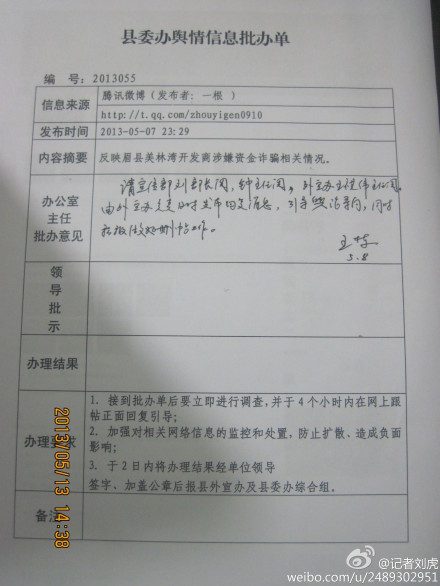 县委办舆情信息批办单
编 号：2013055
信息来源
腾讯微博（发布者：一根 ）
http://t.qq.com/zhouyigen0910
发布时间
2013-05-07 23:29
内容摘要
反映眉县美林湾开发商涉嫌资金诈骗相关情况。
办公室
主任
批办意见
请宣传部刘部长阅，钟主任阅，外宣办主任
由外宣办负责及时发布相关消息，引导舆论导向，同时
积极做好删帖工作。
5.8
领
导
批
示
办理结果
办理要求
1．接到批办单后要立即进行调查，并于4个小时内在网上跟
帖正面回复引导；
2．加强对相关网络信息的监控和处置，防止扩散、造成负面
影响；
3．于2日内将办理结果经单位领导
签字、加盖公章后报县外宣办及县委办综合组。
备注
2013/05/13 14:38
@记者刘虎
weibo.com/u/2489302951